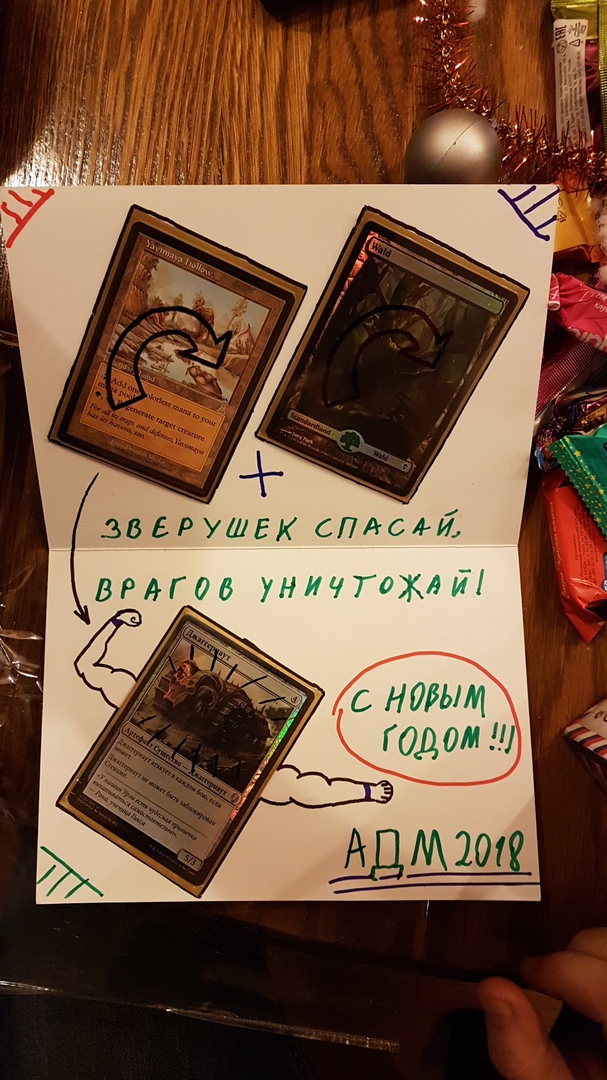 Yavimaya Hollow
Add one colorless mana to your
mana pool.
regenerate target creature.
For all its traps and defenses, Yavimaya
has its havens, too.
Wald
Standardland
Wald
+
ЗВЕРУШЕК СПАСАЙ,
ВРАГОВ УНИЧТОЖАЙ!
Джаггернаут
4
Артефакт Существо — Джаггернаут
Джаггернаут атакует в каждом бою, если
может.
Джаггернаут не может быть заблокирован
Стенами.
5/3
С НОВЫМ
ГОДОМ!!!
АДМ 2018